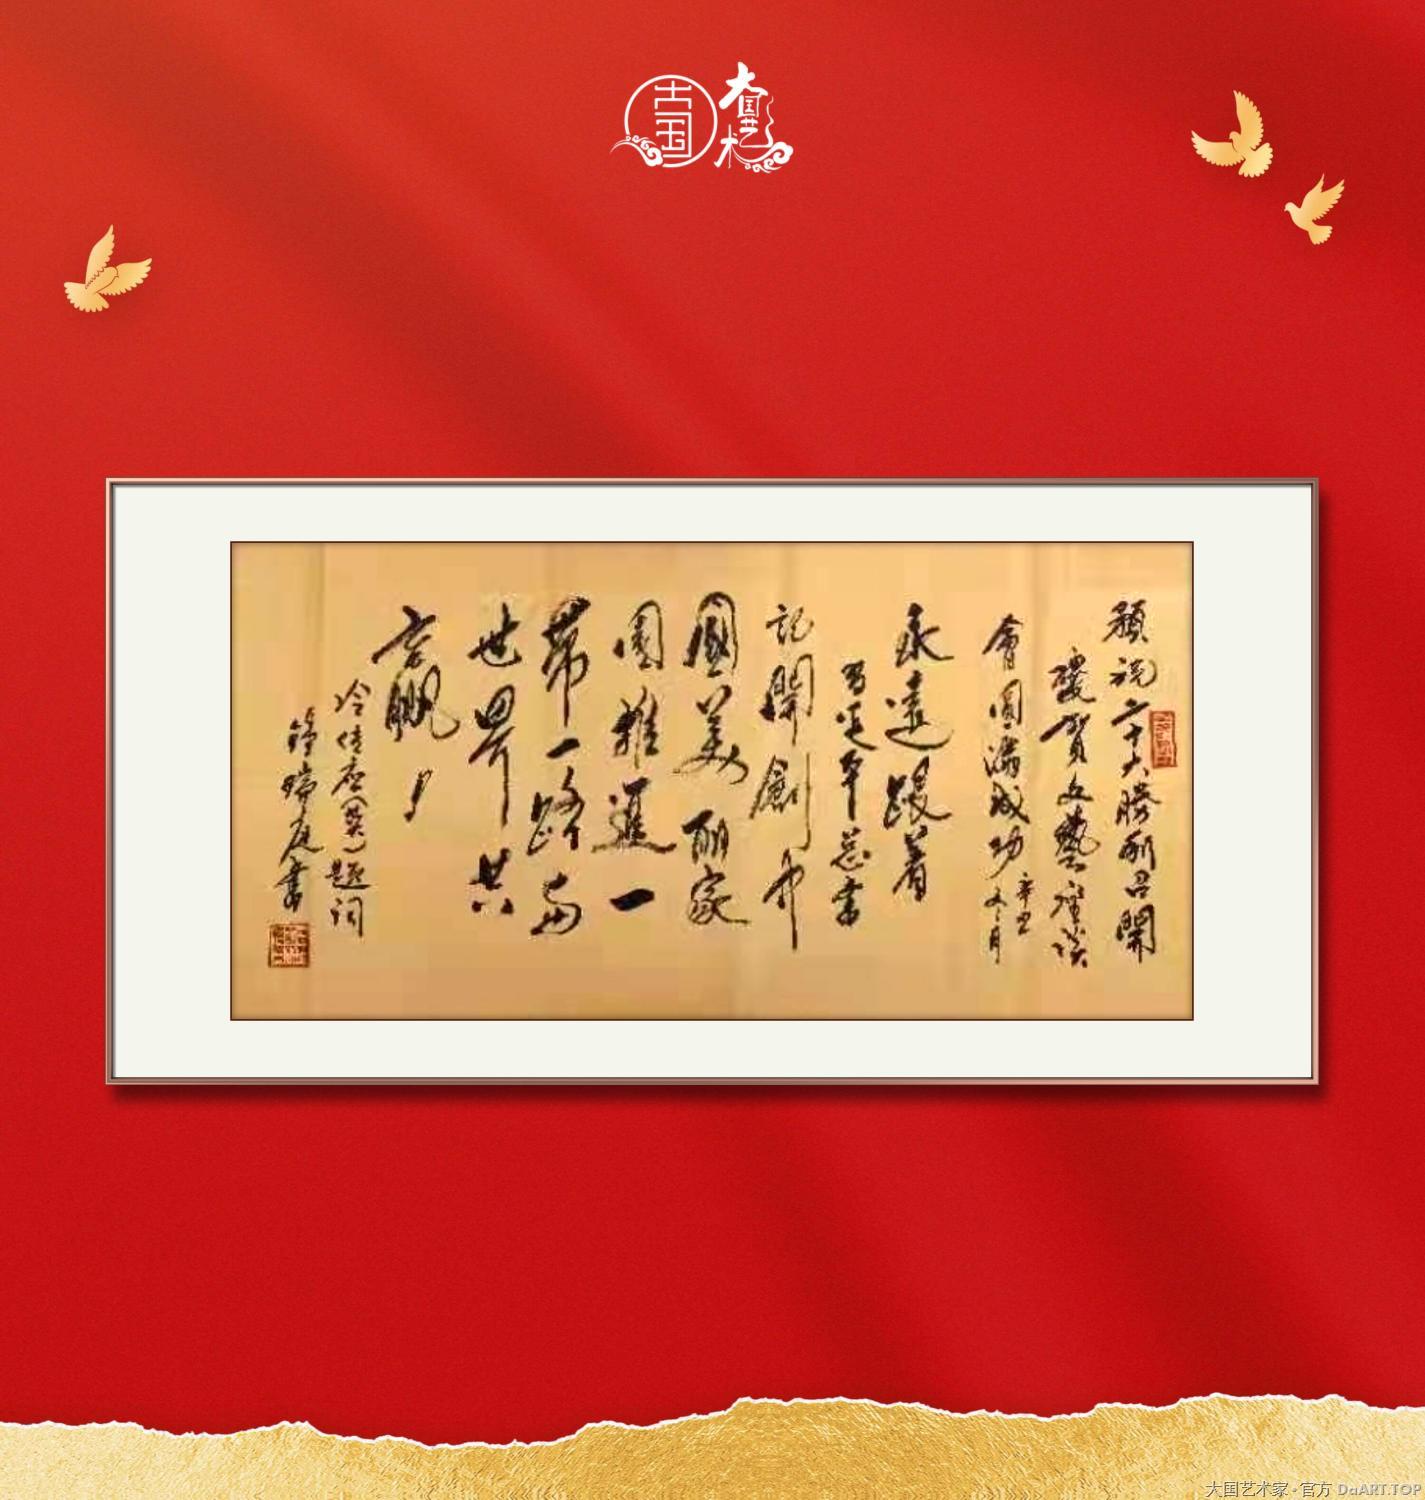 大国艺术
预祝二十大勝利召開
慶賀文藝座談
會圓滿成功
辛丑冬月
永遠跟着
習近平總書
記開創中
國美麗家
園推進一
帶一路與
世界共
言
題詞
書
大国艺术家·官方 DaART.TOP